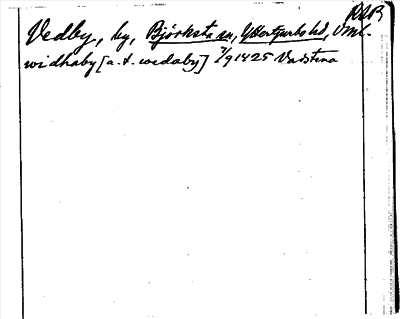 RAP
Vedby, by, Björksta sn, Yttertjurbo hd, Vml.
widhaby [a. t. wedaby] 7/9 1425 Vadstena